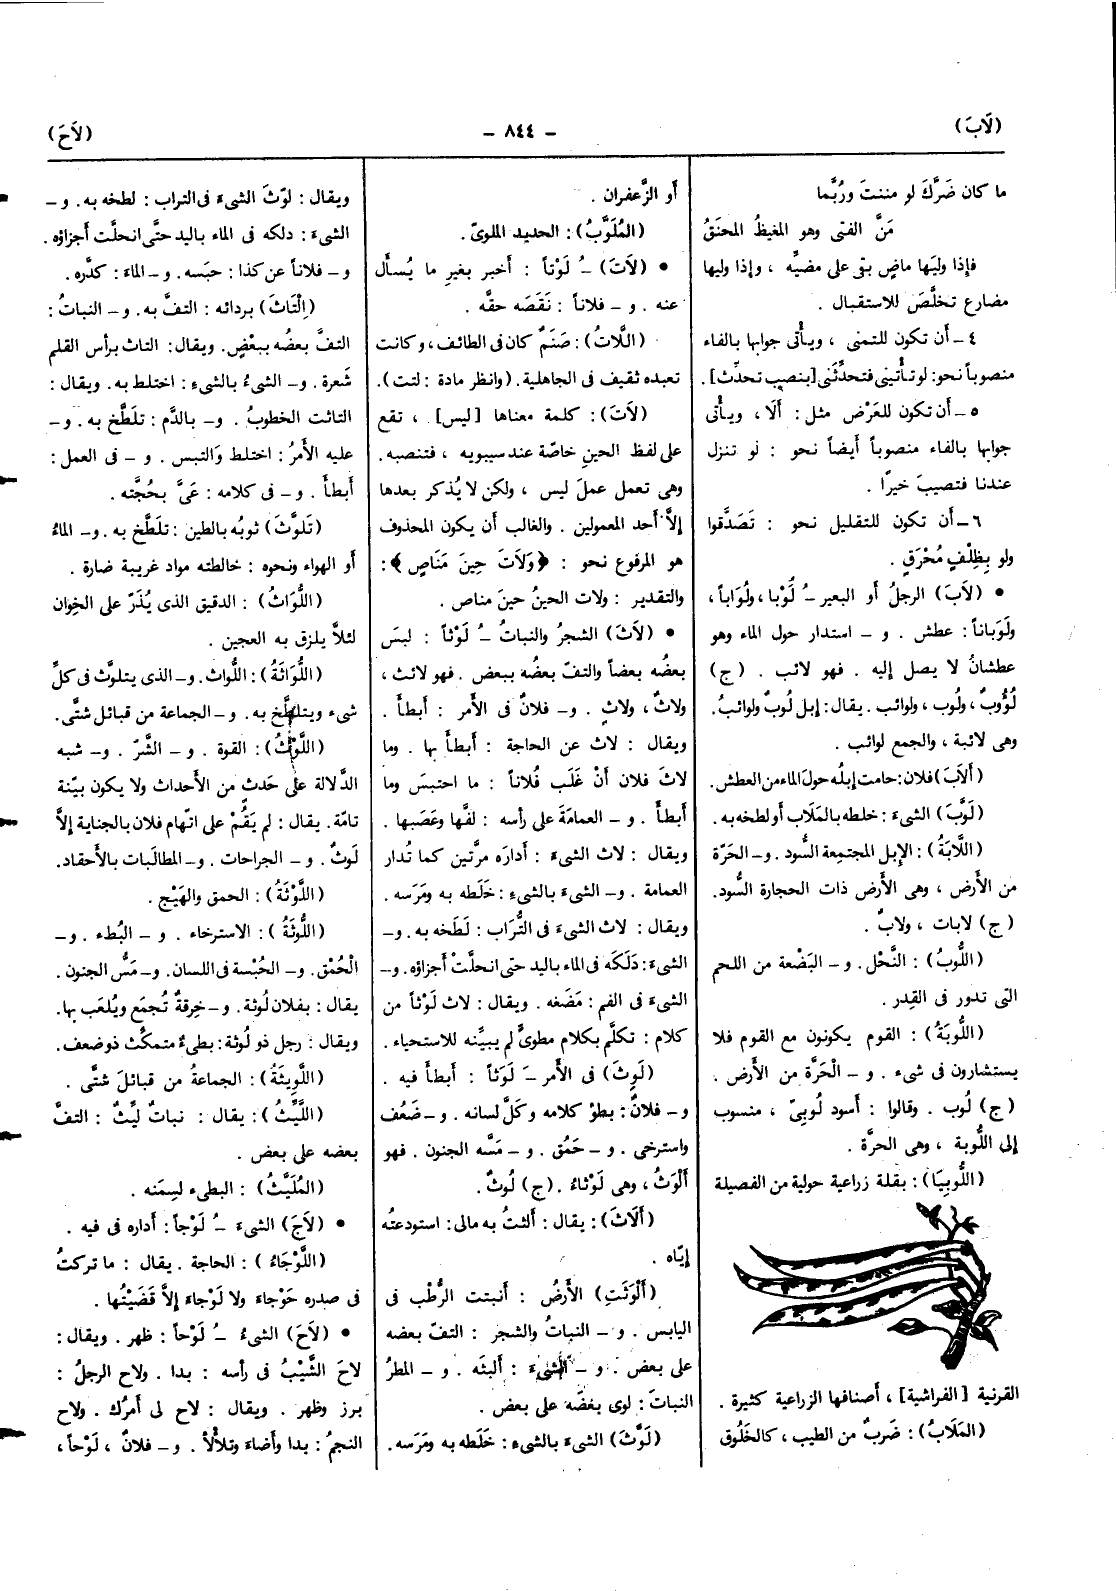 (لَابَ)
— ٨٤٤ —
(لاَحَ)
ما كان ضَرَّكَ لو مننتَ ورُبَّما
مَنَّ الفتى وهو المغيظُ المحنَقُ
فإذا وليَها ماضٍ بقى على مضيِّه ، وإذا وليها
مضارع تخلَّصَ للاستقبال .
٤ – أن تكون للتمنى ، ويأْتى جوابها بالفاء
منصوباً نحو: لو تأْتينى فتحدِّثَنى [بنصب تحدِّث] .
٥ – أن تكون للعَرْض مثل : أَلَا ، ويأْتى
جوابها بالفاء منصوباً أيضاً نحو : لو تنزل
عندنا فتصيبَ خيراً .
٦ – أن تكون للتقليل نحو : تَصَدَّقوا
ولو بِظِلْفٍ مُحْرَقٍ .
• (لاَبَ) الرجلُ أو البعير ـُ لُوْبا ، ولُوَاباً ،
ولَوَباناً : عطش . و – استدار حول الماء وهو
عطشانُ لا يصل إليه . فهو لائب . (ج)
لُؤُوبٌ ، ولُوب ، ولوائب . يقال : إبل لُوبٌ ولوائبُ .
وهى لائبة ، والجمع لوائب .
(أَلاَبَ) فلان : حامت إبلُه حولَ الماء من العطش .
(لَوَّبَ) الشىءَ : خلطه بالمَلَاب أو لطخه به .
(اللَّابَةُ) : الإبل المجتمِعة السُّود . و – الحَرّة
من الأَرض ، وهى الأَرض ذات الحجارة السُّود .
(ج) لابات ، ولابٌ .
(اللُّوبُ) : النَّحْل . و – البَضْعة من اللحم
التى تدور فى القِدر .
(اللُّوبَةُ) : القوم يكونون مع القوم فلا
يستشارون فى شىء . و – الْحَرَّة من الأَرض .
(ج) لُوب . وقالوا : أسود لُوبىّ ، منسوب
إلى اللُّوبة ، وهى الحرَّة .
(اللُّوبِيَا) : بقلة زراعية حولية من الفصيلة
القرنية [الفراشية] ، أصنافها الزراعية كثيرة .
(المَلَابُ) : ضَربٌ من الطيب ، كالخَلُوق
أو الزَّعفران .
(المُلَوَّبُ) : الحديد الملوىّ .
• (لاَتَ) ـُ لَوْتاً : أخبر بغيرِ ما يُسأَل
عنه . و – فلاناً : نَقَصَه حقَّه .
(اللَّاتُ) : صَنَمٌ كان فى الطائف ، وكانت
تعبده ثقيف فى الجاهلية . (وانظر مادة : لتت) .
(لاَتَ) : كلمة معناها [ليس] ، تقع
على لفظ الحينِ خاصّة عند سيبويه ، فتنصبه .
وهى تعمل عملَ ليس ، ولكن لا يُذكر بعدها
إلاَّ أحد المعمولين . والغالب أن يكون المحذوف
هو المرفوع نحو : ﴿وَلَاتَ حِينَ مَنَاصٍ﴾ :
والتقدير : ولات الحينُ حينَ مناص .
• (لاَثَ) الشجرُ والنباتُ ـُ لَوْثاً : لبسَ
بعضُه بعضاً والتفّ بعضُه ببعض . فهو لائث ،
ولاثٌ ، ولاثٍ . و – فلانٌ فى الأمر : أبطأَ .
ويقال : لاث عن الحاجة : أبطأَ بها . وما
لاثَ فلان أَنْ غَلَب فُلاناً : ما احتبسَ وما
أبطأَ . و – العمامَةَ على رأسه : لفَّها وعَصَبها .
ويقال : لاث الشىءَ : أدارَه مرَّتين كما تُدار
العمامة . و – الشىءَ بالشىءِ : خَلَطه به ومَرَسه .
ويقال : لاث الشىءَ فى التُّرَاب : لَطَخه به . و –
الشىءَ : دَلَكَه فى الماء باليد حتى انحلَّتْ أجزاؤه . و –
الشىءَ فى الفم : مَضَغه . ويقال : لاث لَوْثاً من
كلام : تكلَّم بكلام مطوىٍّ لم يبيِّنه للاستحياء .
(لَوِثَ) فى الأمر ـَ لَوَثاً : أبطأَ فيه .
و – فلانٌ : بطؤ كلامه وكَلَّ لسانه . و – ضَعُف
واسترخى . و – حَمُق . و – مَسَّه الجنون . فهو
أَلْوَثُ ، وهى لَوْثاءُ . (ج) لُوثٌ .
(أَلَاثَ) : يقال : أَلثتُ به مالى : استودعتُه
إيّاه .
(أَلْوَثَتِ) الأَرضُ : أنبتت الرُّطْب فى
اليابس . و – النباتُ والشجر : التفّ بعضه
على بعض . و – الشىءَ : ألبثَه . و – المطرُ
النباتَ : لوى بعْضَه على بعض .
(لَوَّثَ) الشىءَ بالشىءِ : خَلَطه به ومَرَسه .
ويقال : لوّثَ الشىءَ فى التراب : لطخه به . و –
الشىءَ : دلكه فى الماء باليد حتَّى انحلَّت أجزاؤه .
و – فلاناً عن كذا : حبَسه . و – الماءَ : كدَّره .
(اِلْتَاثَ) بردائه : التفَّ به . و – النباتُ :
التفَّ بعضُه ببعْضٍ . ويقال : التاث برأس القلم
شَعرة . و – الشىءُ بالشىءِ : اختلط به . ويقال :
التاثت الخطوبُ . و – بالدَّم : تلَطَّخ به . و –
عليه الأمرُ : اختلط وَالتبس . و – فى العمل :
أبطأَ . و – فى كلامه : عَىَّ بحُجَّته .
(تَلَوَّثَ) ثوبُه بالطين : تلَطَّخ به . و – الماءُ
أو الهواء ونحوه : خالطته مواد غريبة ضارة .
(اللُّوَاثُ) : الدقيق الذى يُذَرّ على الخِوان
لئلاَّ يلزق به العجين .
(اللُّوَاثَةُ) : اللُّواث . و – الذى يتلوّث فى كلِّ
شىء ويتلطَّخ به . و – الجماعة من قبائل شتَّى .
(اللَّوْثُ) : القوة . و – الشَّرّ . و – شبه
الدَّلالة على حَدثٍ من الأحداث ولا يكون بيّنة
تامّة . يقال : لم يَقُمْ على اتّهام فلان بالجناية إلاَّ
لَوثٌ . و – الجراحات . و – المطالَبات بالأحقاد .
(اللَّوْثَةُ) : الحمق والهَيْج .
(اللُّوثَةُ) : الاسترخاء . و – البُطء . و –
الْحُمْق . و – الحُبْسة فى اللسان . و – مَسُّ الجنون .
يقال : بفلان لُوثة . و – خِرقةٌ تُجمَع ويُلعَب بها .
ويقال : رجل ذو لُوثة : بطىءٌ متمكِّث ذو ضعف .
(اللَّوِيثَةُ) : الجماعةُ من قبائلَ شتَّى .
(اللَّيِّثُ) : يقال : نباتٌ ليِّثٌ : التفَّ
بعضه على بعض .
(المُلَيَّثُ) : البطىء لسِمَنه .
• (لاَجَ) الشىءَ ـُ لَوْجاً : أداره فى فيه .
(اللَّوْجَاءُ) : الحاجة . يقال : ما تركتُ
فى صدره حَوْجاءَ ولا لَوْجاءَ إلاَّ قَضَيْتُها .
• (لاَحَ) الشىءُ ـُ لَوْحاً : ظهر . ويقال :
لاحَ الشَّيْبُ فى رأسه : بدا . ولاح الرجلُ :
برز وظهر . ويقال : لاح لى أمرُك . ولاح
النجمُ : بدا وأضاءَ وتلأْلأَ . و – فلانٌ ، لَوْحاً ،